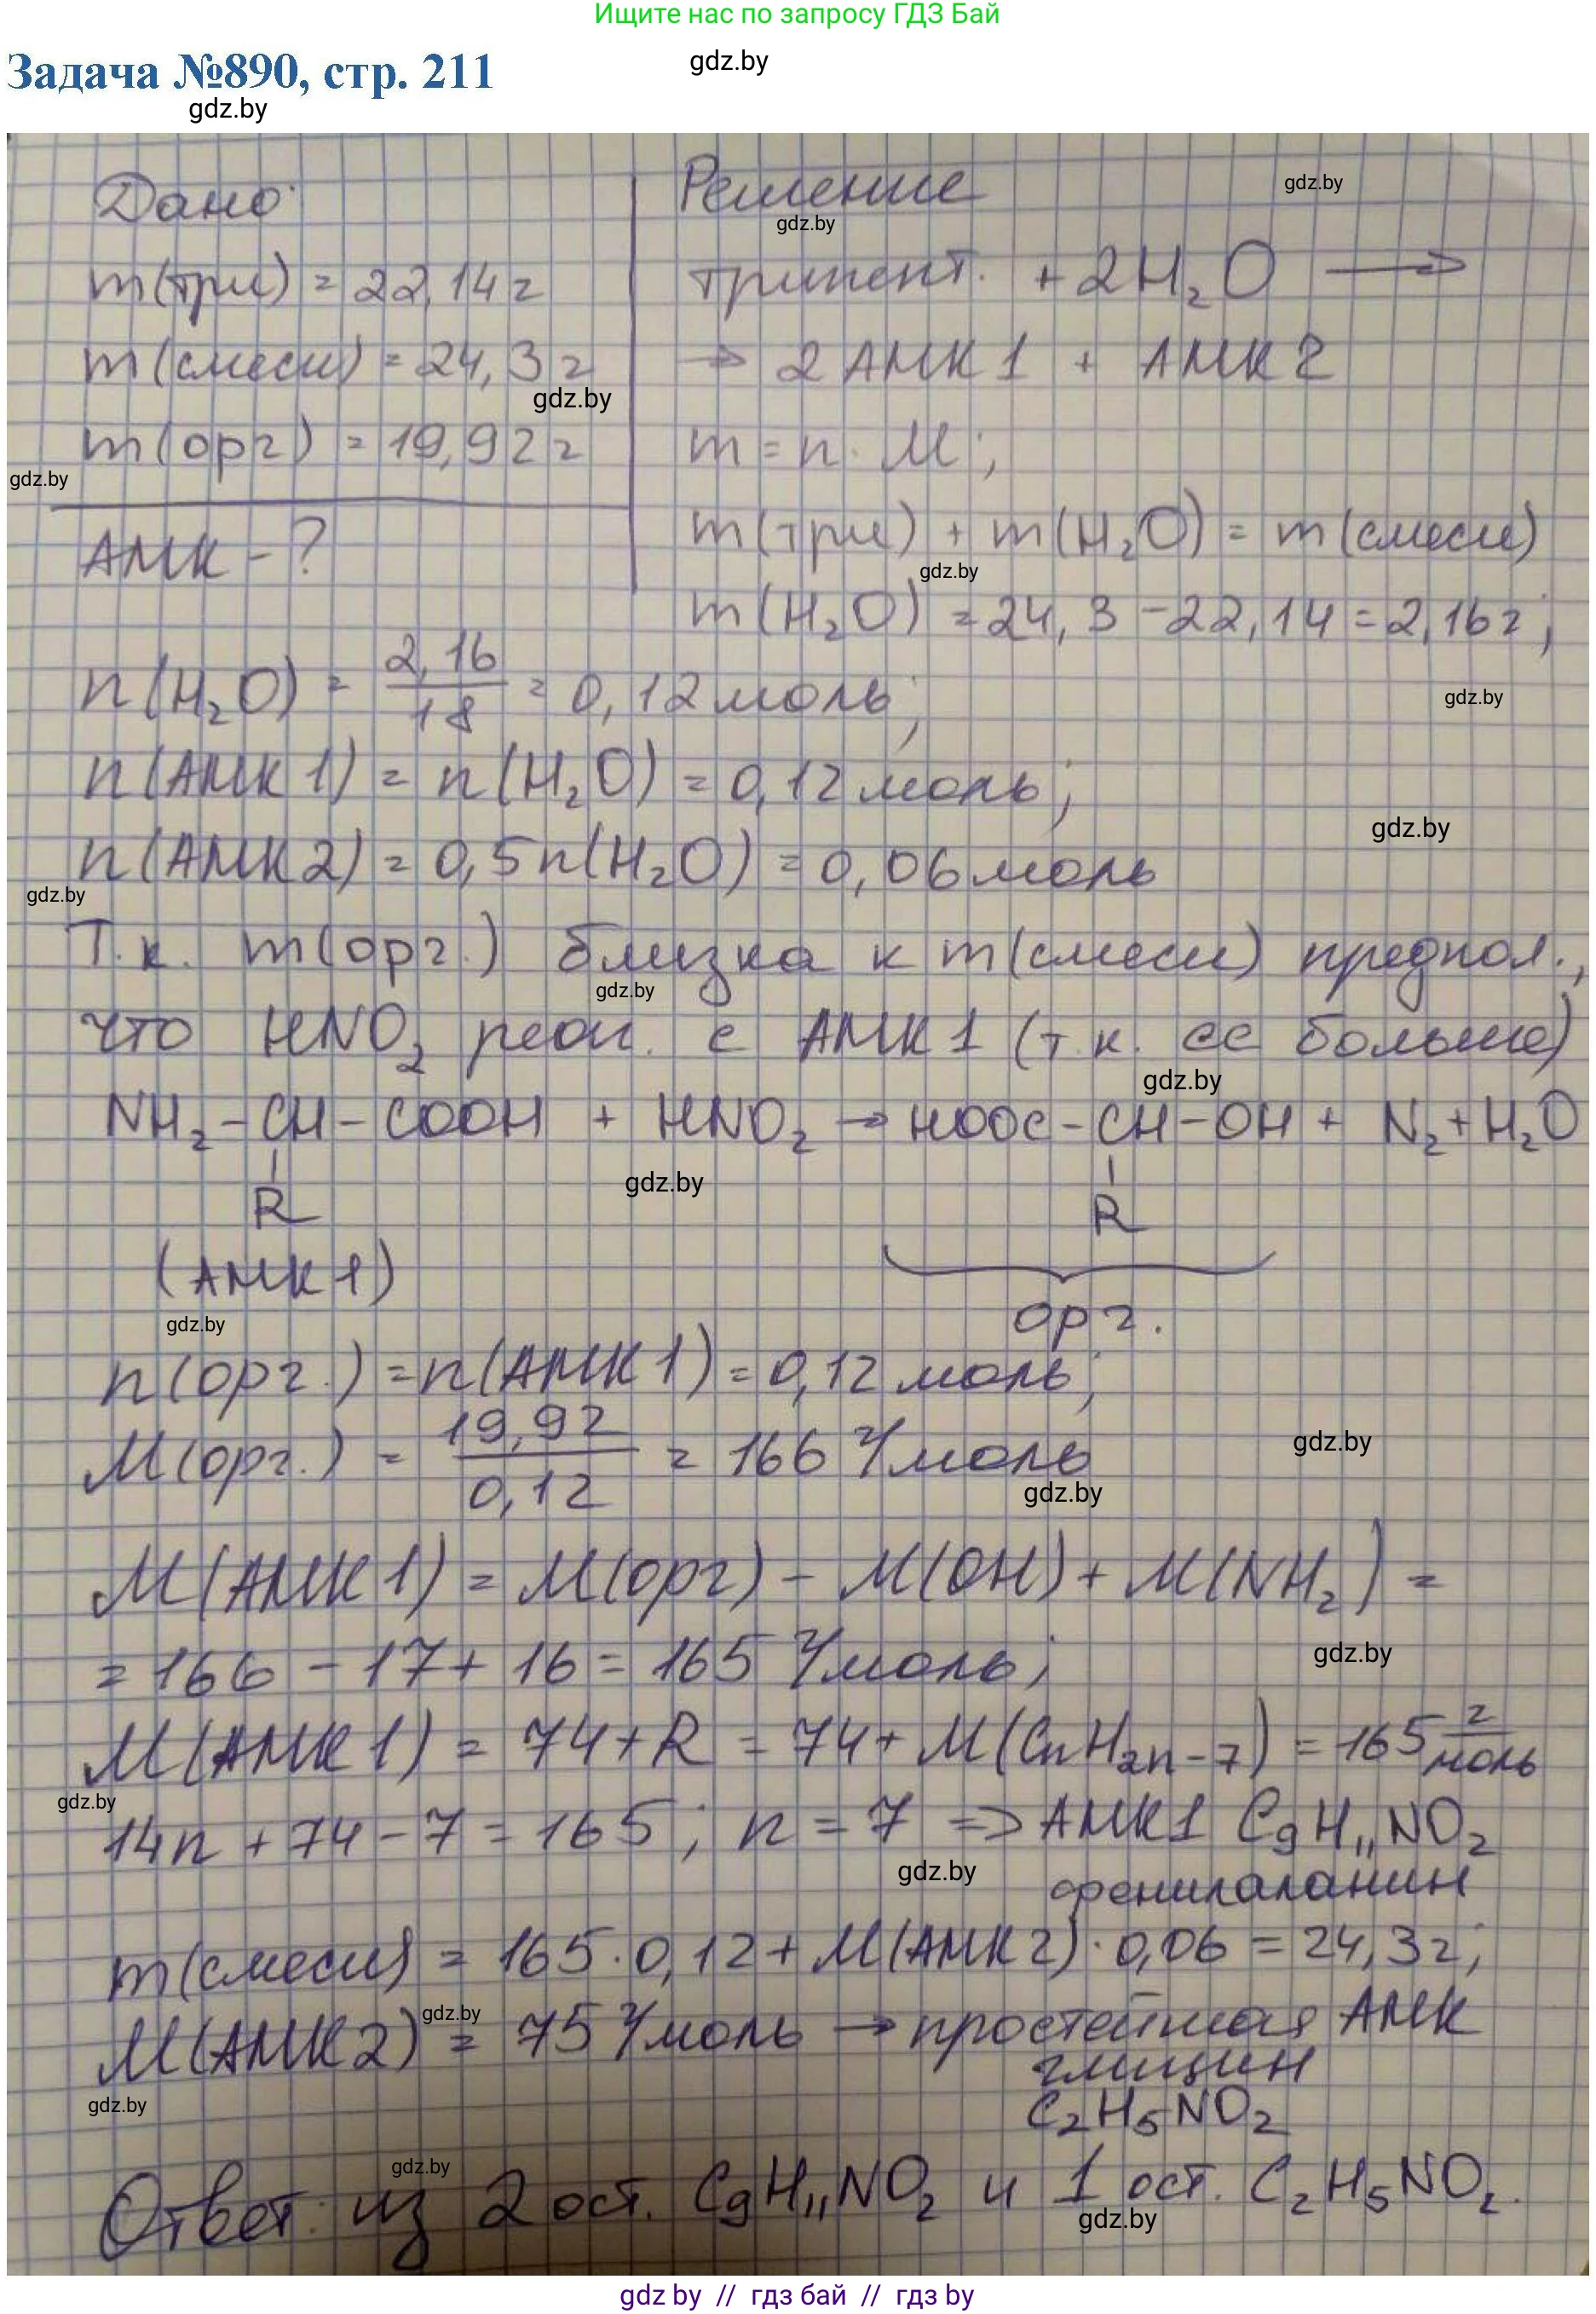 Ищите нас по запросу ГДЗ Бай
Задача №890, стр. 211
gdz.by
gdz.by
Дано:
m(три) = 22,14 г
m(смеси) = 24,3 г
gdz.by
m(орг) = 19,92 г
gdz.by
АМК - ?
Решение
gdz.by
gdz.by
трипепт. + 2H₂O →
→ 2 АМК 1 + АМК 2
m = n · M;
m(три) + m(H₂O) = m(смеси)
gdz.by
m(H₂O) = 24,3 - 22,14 = 2,16 г;
n(H₂O) = 2,16/18 = 0,12 моль;
gdz.by
n(АМК 1) = n(H₂O) = 0,12 моль;
gdz.by
n(АМК 2) = 0,5n(H₂O) = 0,06 моль
gdz.by
Т.к. m(орг.) близка к m(смеси) предпол.,
gdz.by
что HNO₂ реаг. с АМК 1 (т.к. ее больше)
gdz.by
NH₂-CH-COOH + HNO₂ → HOOC-CH-OH + N₂ + H₂O
gdz.by
R R
(АМК 1)
орг.
gdz.by
n(орг.) = n(АМК 1) = 0,12 моль;
M(орг.) = 19,92/0,12 = 166 г/моль
gdz.by
gdz.by
M(АМК 1) = M(орг) - M(OH) + M(NH₂) =
= 166 - 17 + 16 = 165 г/моль;
gdz.by
M(АМК 1) = 74 + R = 74 + M(CnH₂n-7) = 165 г/моль
gdz.by
14n + 74 - 7 = 165; n = 7 => АМК 1 C₉H₁₁NO₂
gdz.by
фенилаланин
m(смеси) = 165·0,12 + M(АМК 2)·0,06 = 24,3 г;
gdz.by
M(АМК 2) = 75 г/моль → простейшая АМК
глицин
gdz.by
C₂H₅NO₂
gdz.by
Ответ: из 2 ост. C₉H₁₁NO₂ и 1 ост. C₂H₅NO₂.
gdz.by
gdz by // гдз бай // гдз by